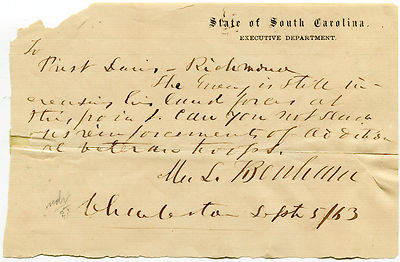 State of South Carolina.
EXECUTIVE DEPARTMENT.
To
Prest Davis – Richmond
The Enemy is still in-
creasing his land forces at
this point. Can you not send
us reinforcements of addition
al veteran troops.
M. L. Bonham
Charleston Sept 5/63